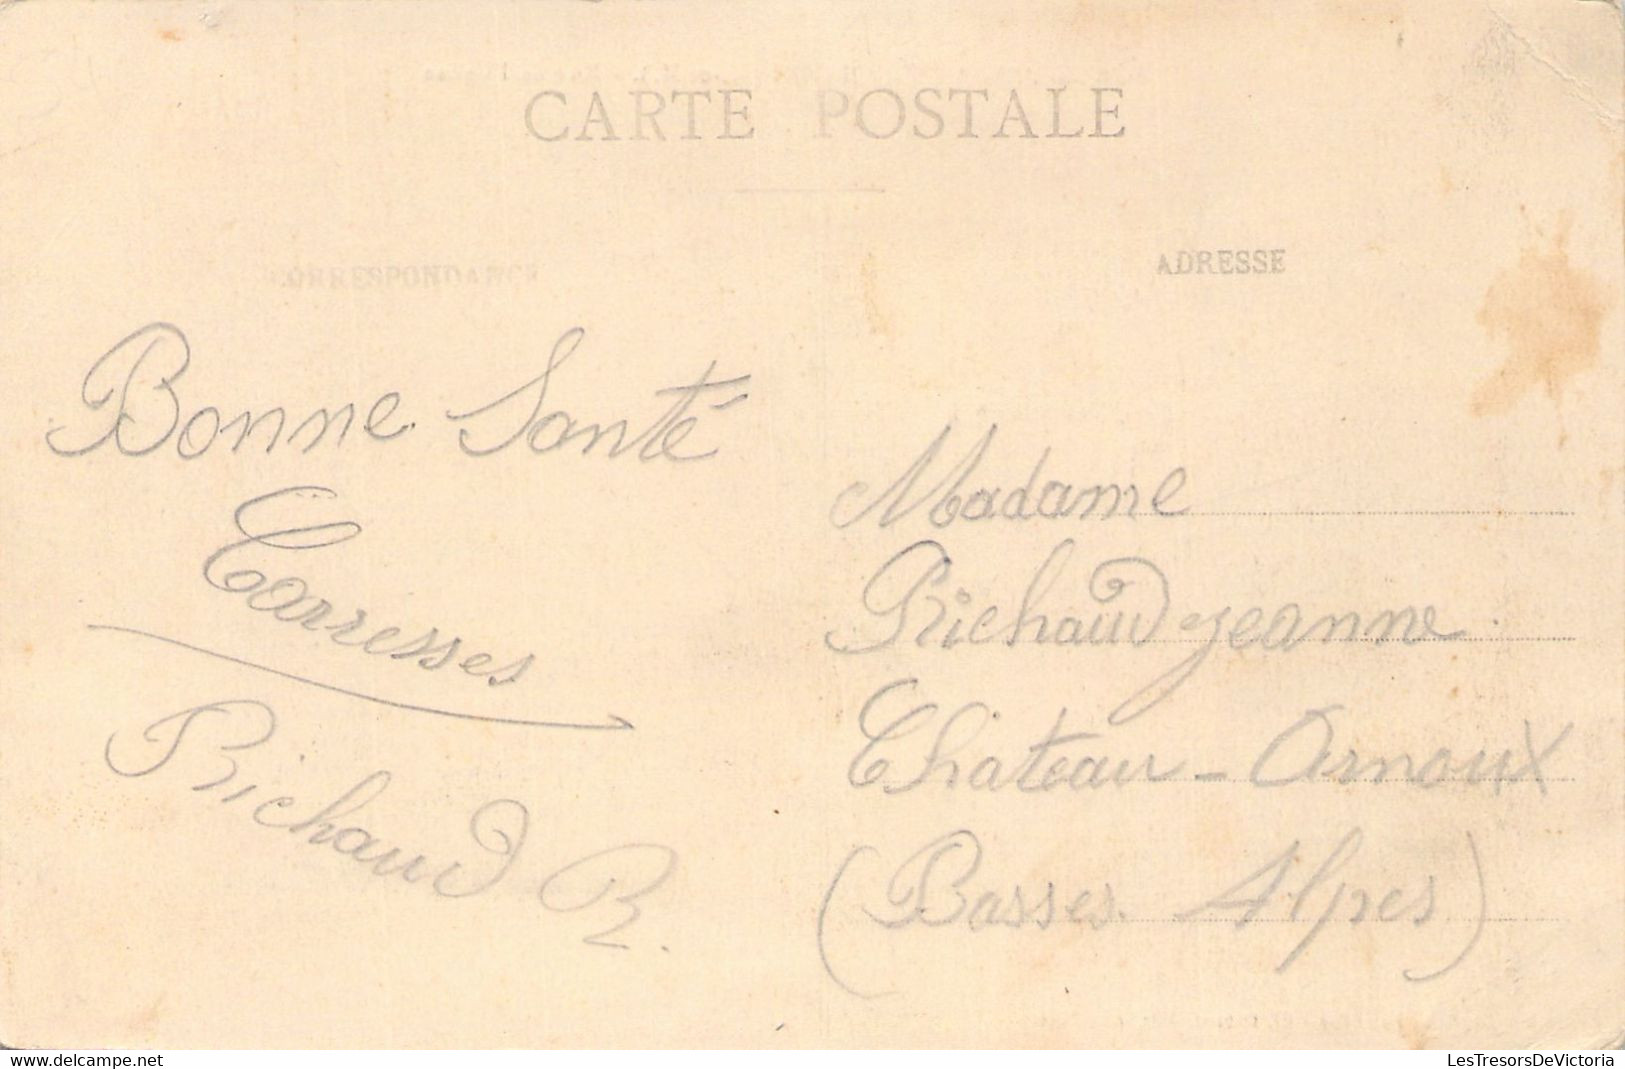 CARTE POSTALE
CORRESPONDANCE
ADRESSE
Bonne Santé
Carresses
Richaud R.
Madame
Richaud Jeanne
Château-Arnoux
(Basses Alpes)
delcampe.net
LesTresorsDeVictoria